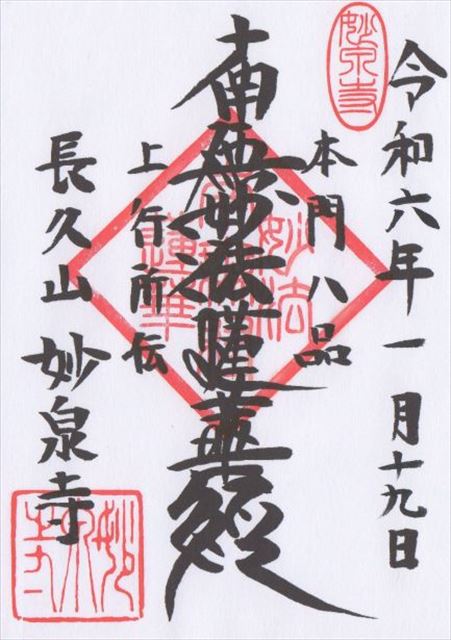 妙泉寺
令和六年一月十九日
本門八品
南無妙法蓮華経
上行所伝
長久山 妙泉寺
妙法
蓮華
妙泉寺